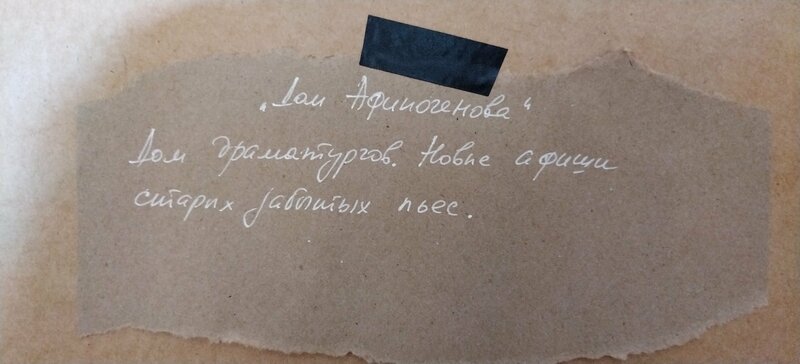 „Дом Афиногенова“
Дом драматургов. Новые афиши
старых забытых пьес.